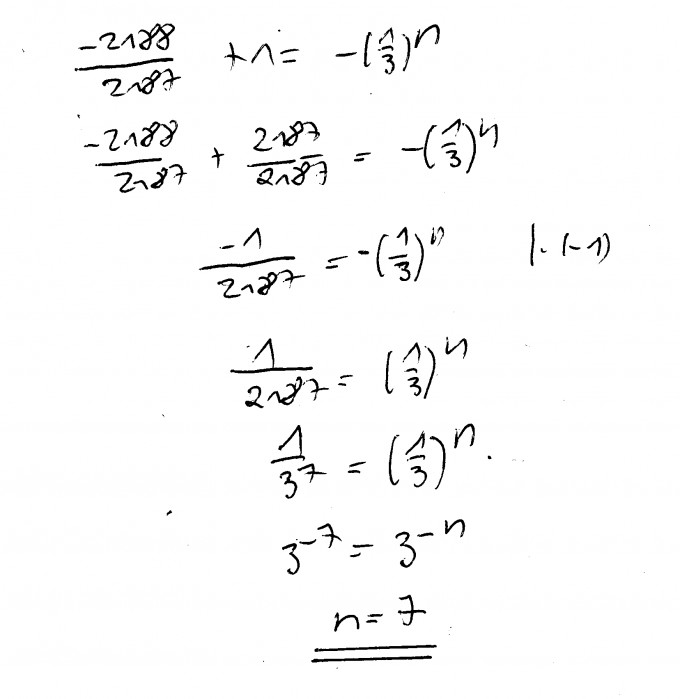 -2188/2187 + 1 = -(1/3)^n
-2188/2187 + 2187/2187 = -(1/3)^n
-1/2187 = -(1/3)^n |·(-1)
1/2187 = (1/3)^n
1/3^7 = (1/3)^n.
3^-7 = 3^-n
n = 7